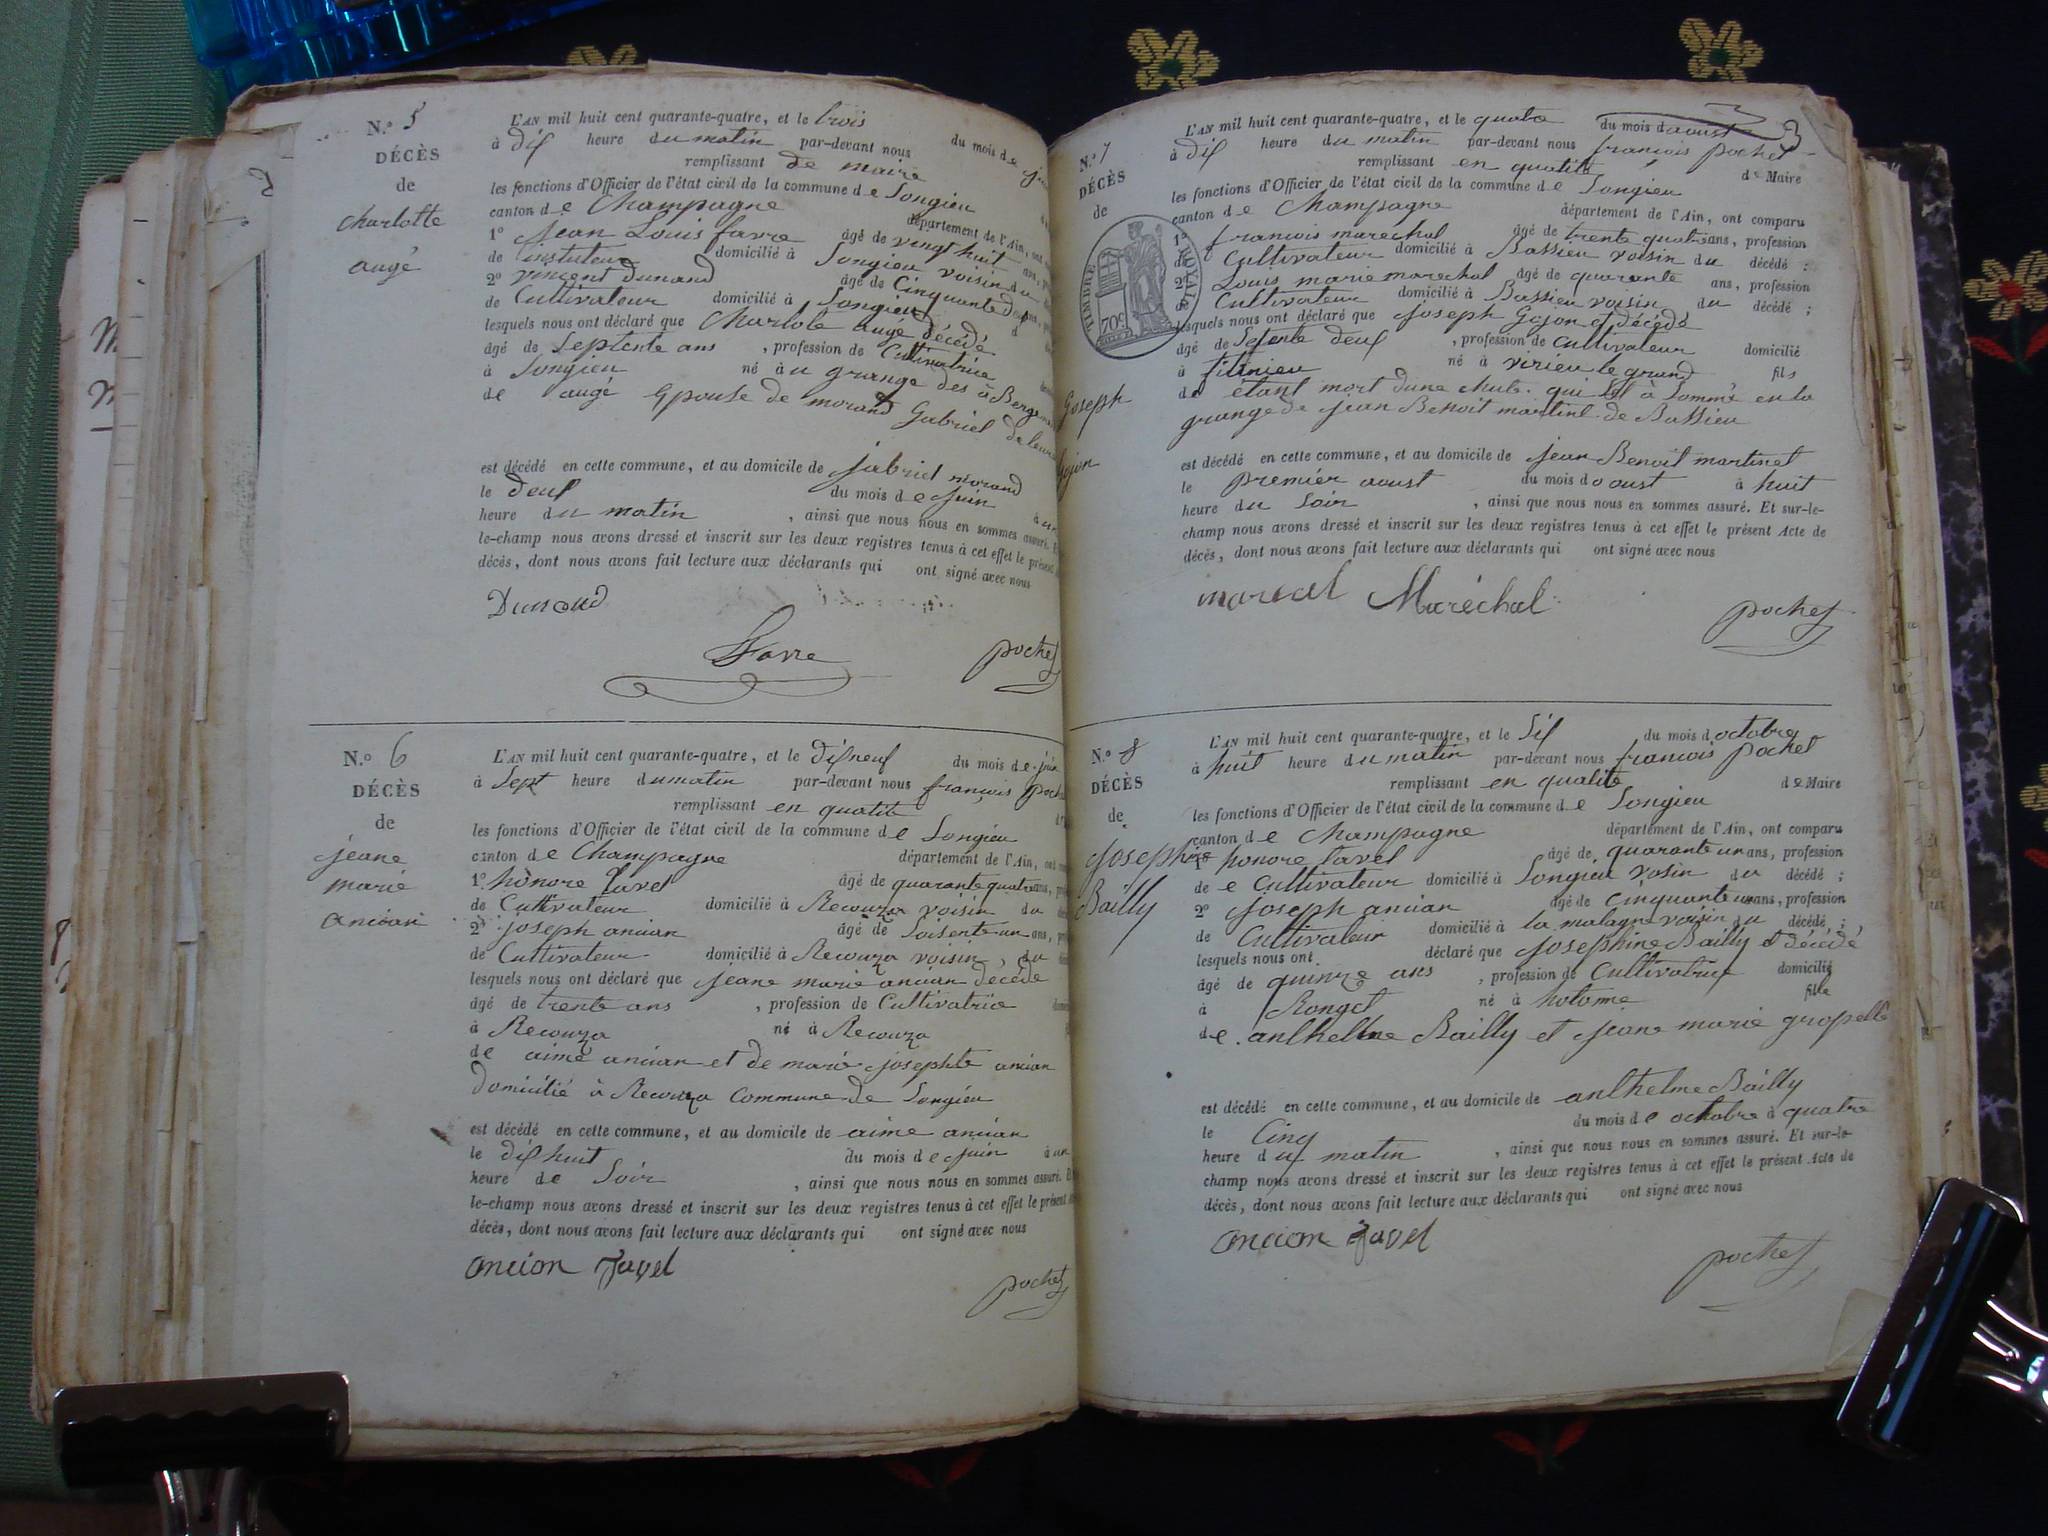 N.º 5
DÉCÈS
de
charlotte
augé
L'AN mil huit cent quarante-quatre, et le trois
du mois de
à dix heure du matin par-devant nous
remplissant de maire
les fonctions d'Officier de l'état civil de la commune de Songieu
canton de Champagne département de l'Ain,
1º jean Louis favre âgé de vingt huit
de instituteur domicilié à Songieu voisin du
2º vincent Dunand âgé de Cinquante
de Cultivateur domicilié à Songieu
lesquels nous ont déclaré que Charlote auge décédé
âgé de Septente ans , profession de Cultivatrice
à Songieu né à
de augé Epouse de morand Gabriel
est décédé en cette commune, et au domicile de jabriel morand
le deux du mois de juin
heure du matin , ainsi que nous nous en sommes assuré.
le-champ nous avons dressé et inscrit sur les deux registres tenus à cet effet le présent
décès, dont nous avons fait lecture aux déclarants qui ont signé avec nous
Dunand
Favre
pochet
N.º 6
DÉCÈS
de
jeane
marie
ancian
L'AN mil huit cent quarante-quatre, et le dixneuf du mois de juin
à Sept heure du matin par-devant nous françois
remplissant en qualité
les fonctions d'Officier de l'état civil de la commune de Songieu
canton de Champagne département de l'Ain,
1º honore javel âgé de quarante quatre ans,
de Cultivateur domicilié à Recouza voisin du
2º joseph ancian âgé de Soisente un ans,
de Cultivateur domicilié à Recouza voisin, du
lesquels nous ont déclaré que jeane marie ancian décédé
âgé de trente ans , profession de Cultivatrice
à Recouza né à Recouza
de aimé ancian et de marie josephte ancian
Domicilié à Recouza Commune de Songieu
est décédé en cette commune, et au domicile de aime ancian
le dixhuit du mois de juin à un
heure de Soir , ainsi que nous nous en sommes assuré.
le-champ nous avons dressé et inscrit sur les deux registres tenus à cet effet le présent
décès, dont nous avons fait lecture aux déclarants qui ont signé avec nous
ancian Javel
pochet
N.º 7
DÉCÈS
de
Goseph
Gojon
TIMBRE ROYAL
70c.
L'AN mil huit cent quarante-quatre, et le quatre du mois d aoust
à dix heure du matin par-devant nous françois pochet
remplissant en qualité de Maire
les fonctions d'Officier de l'état civil de la commune de Songieu
canton de Champagne département de l'Ain, ont comparu
1º francois marechal âgé de trente quatre ans, profession
de Cultivateur domicilié à Bassieu voisin du décédé ;
2º Louis marie marechal âgé de quarante ans, profession
de Cultivateur domicilié à Bassieu voisin du décédé ;
lesquels nous ont déclaré que joseph Gojon et décédé
âgé de Setente deux , profession de Cultivateur domicilié
à né à virieu le grand fils
de étant mort dune chute qui à Sommé en la
grange de jean Benoit martinet de Bassieu
est décédé en cette commune, et au domicile de jean Benoit martinet
le premier aoust du mois d aoust à huit
heure du Soir , ainsi que nous nous en sommes assuré. Et sur-le-
champ nous avons dressé et inscrit sur les deux registres tenus à cet effet le présent Acte de
décès, dont nous avons fait lecture aux déclarants qui ont signé avec nous
Maréchal
pochet
N.º 8
DÉCÈS
de
josephine
Bailly
L'AN mil huit cent quarante-quatre, et le Six du mois d octobre
à huit heure du matin par-devant nous francois pochet
remplissant en qualité de Maire
les fonctions d'Officier de l'état civil de la commune de Songieu
canton de Champagne département de l'Ain, ont comparu
1º honore javel âgé de quarante un ans, profession
de e Cultivateur domicilié à Songieu vosin du décédé ;
2º joseph ancian âgé de cinquante un ans, profession
de Cultivateur domicilié à la malagne voisin du décédé ;
lesquels nous ont déclaré que josephine Bailly et décédé
âgé de quinze ans , profession de Cultivatrice domicilié
à né à hotonne fille
de anthelme Bailly et jeane marie
est décédé en cette commune, et au domicile de anthelme Bailly
le Cinq du mois de octobre à quatre
heure du matin , ainsi que nous nous en sommes assuré. Et sur-le-
champ nous avons dressé et inscrit sur les deux registres tenus à cet effet le présent Acte de
décès, dont nous avons fait lecture aux déclarants qui ont signé avec nous
ancian Javel
pochet